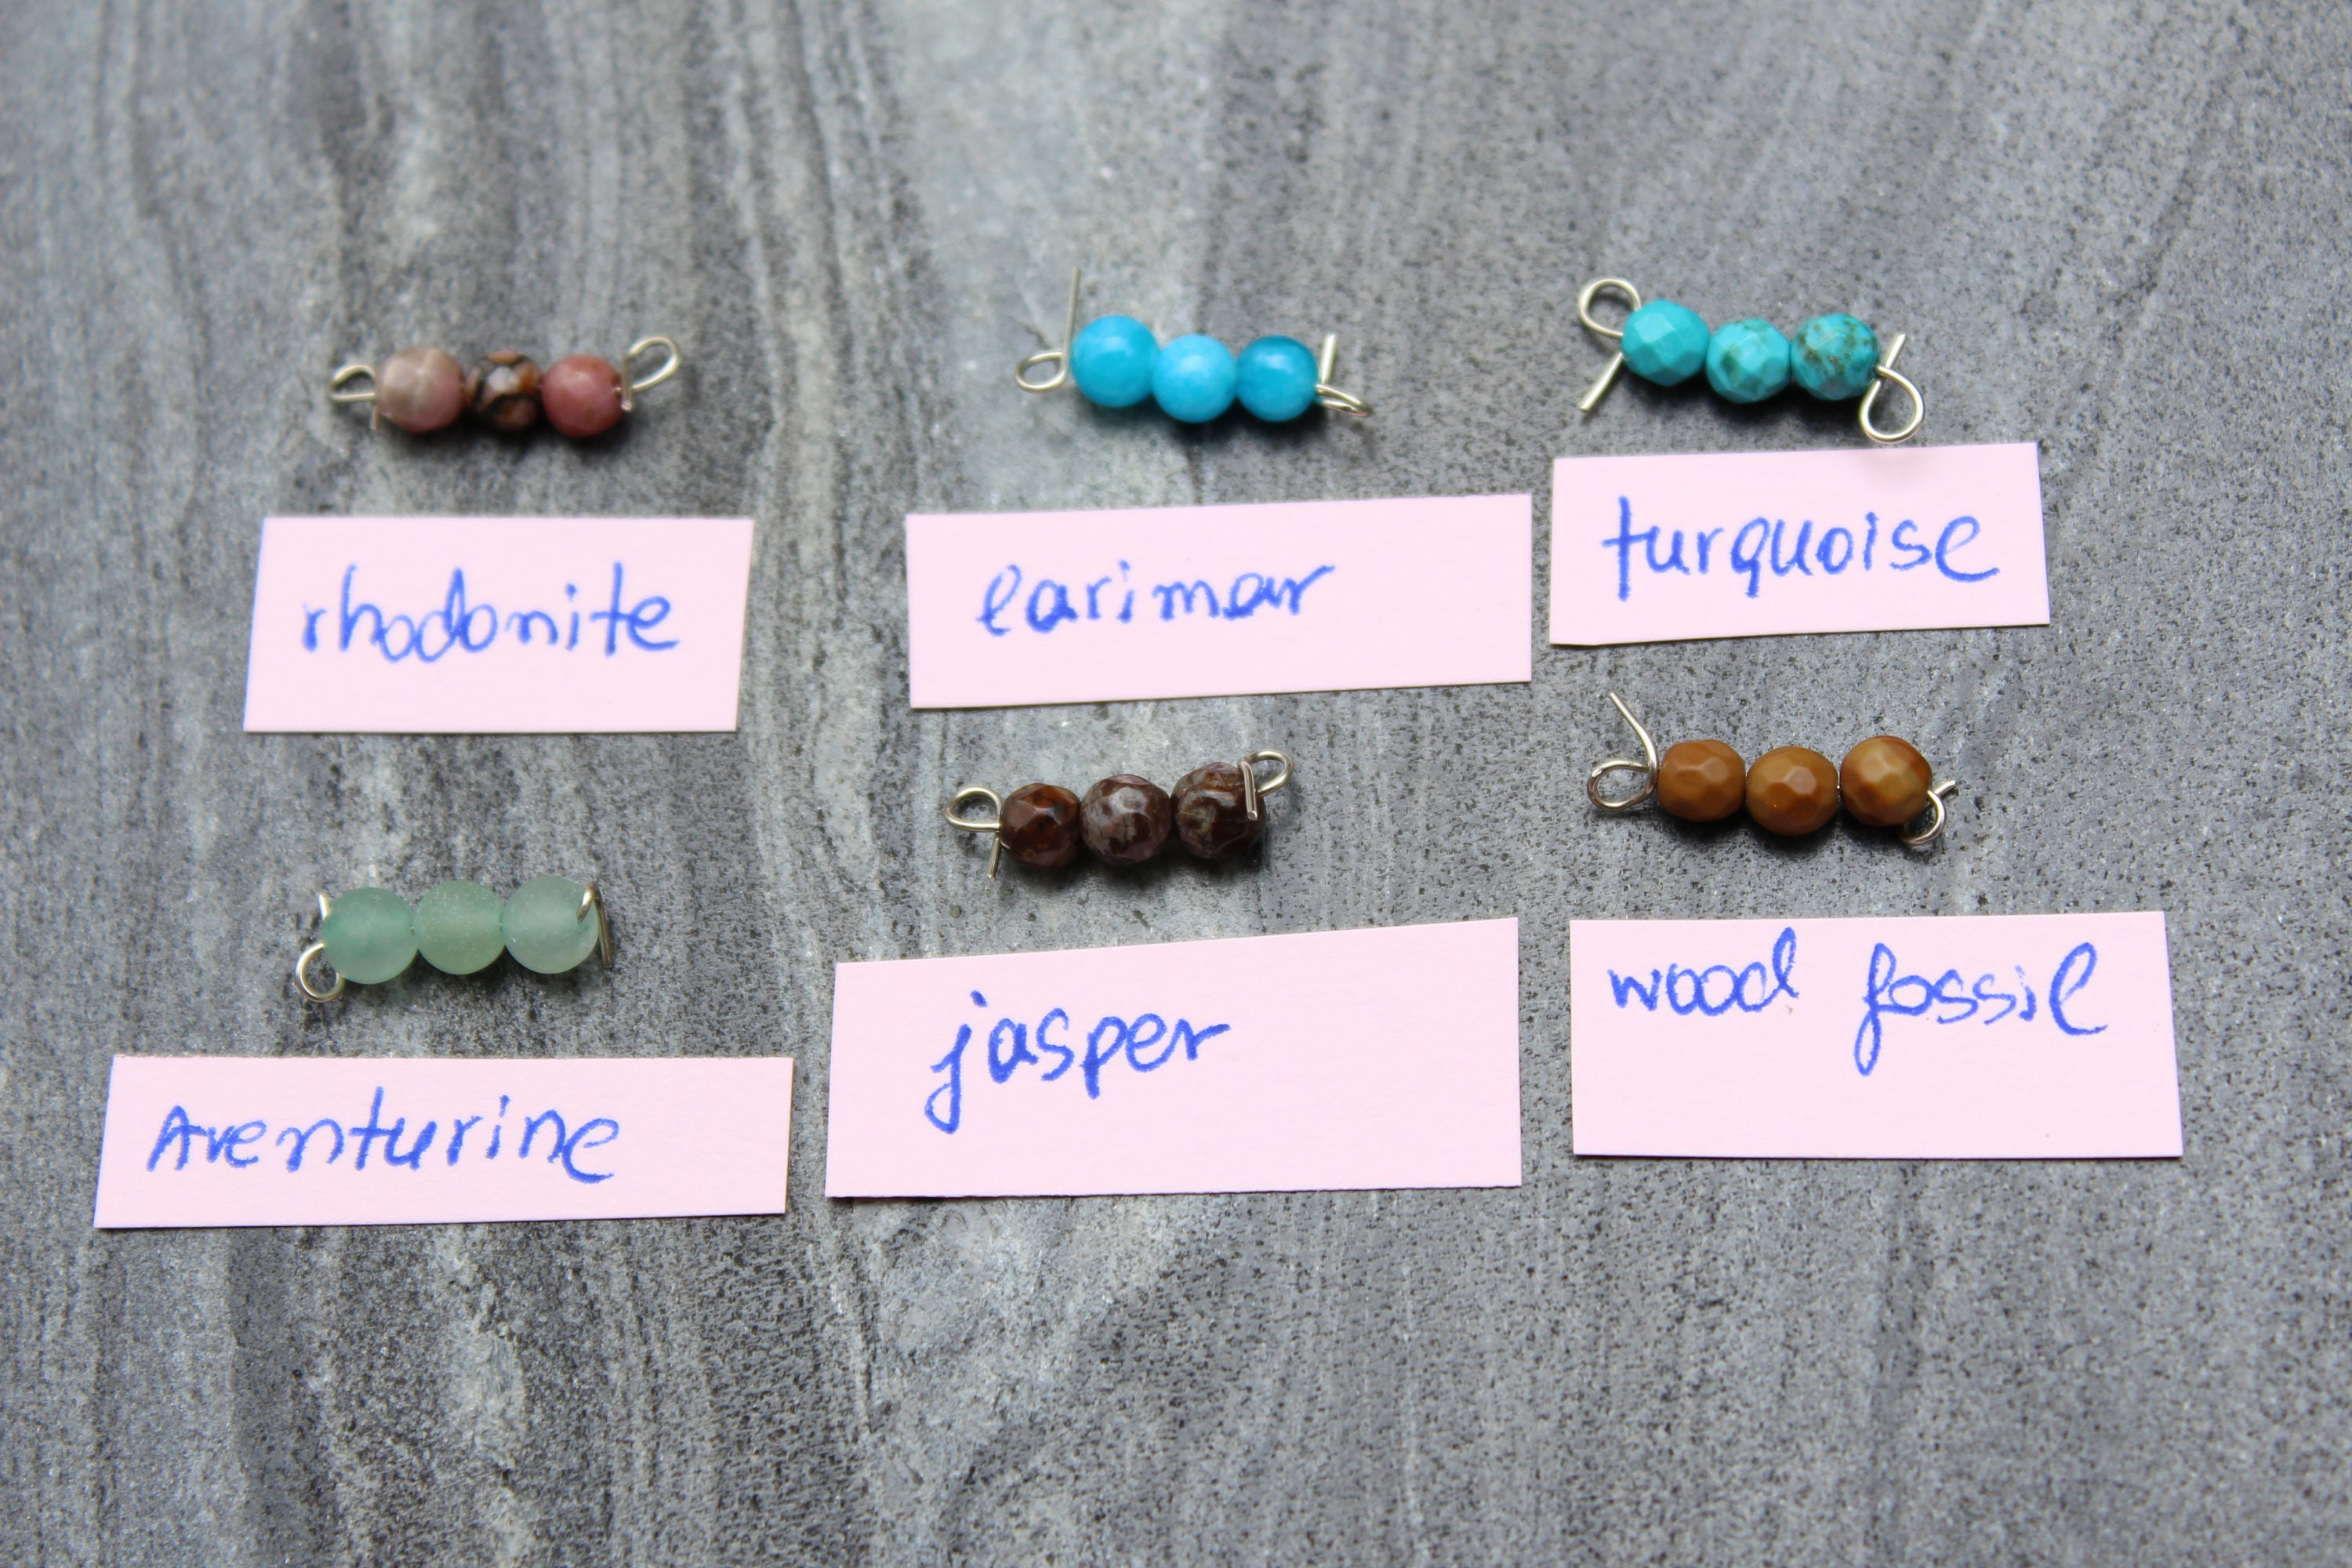 rhodonite
larimar
turquoise
Aventurine
jasper
wood fossil